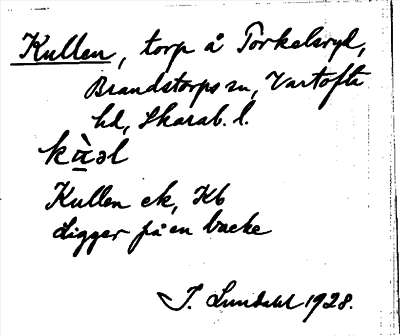 Kullen, torp å Torkelsryd,
Brandstorps sn, Vartofta
hd, Skarab. l.
kὰəl
Kullen ek, Kb
ligger på en backe
I. Lundahl 1928.